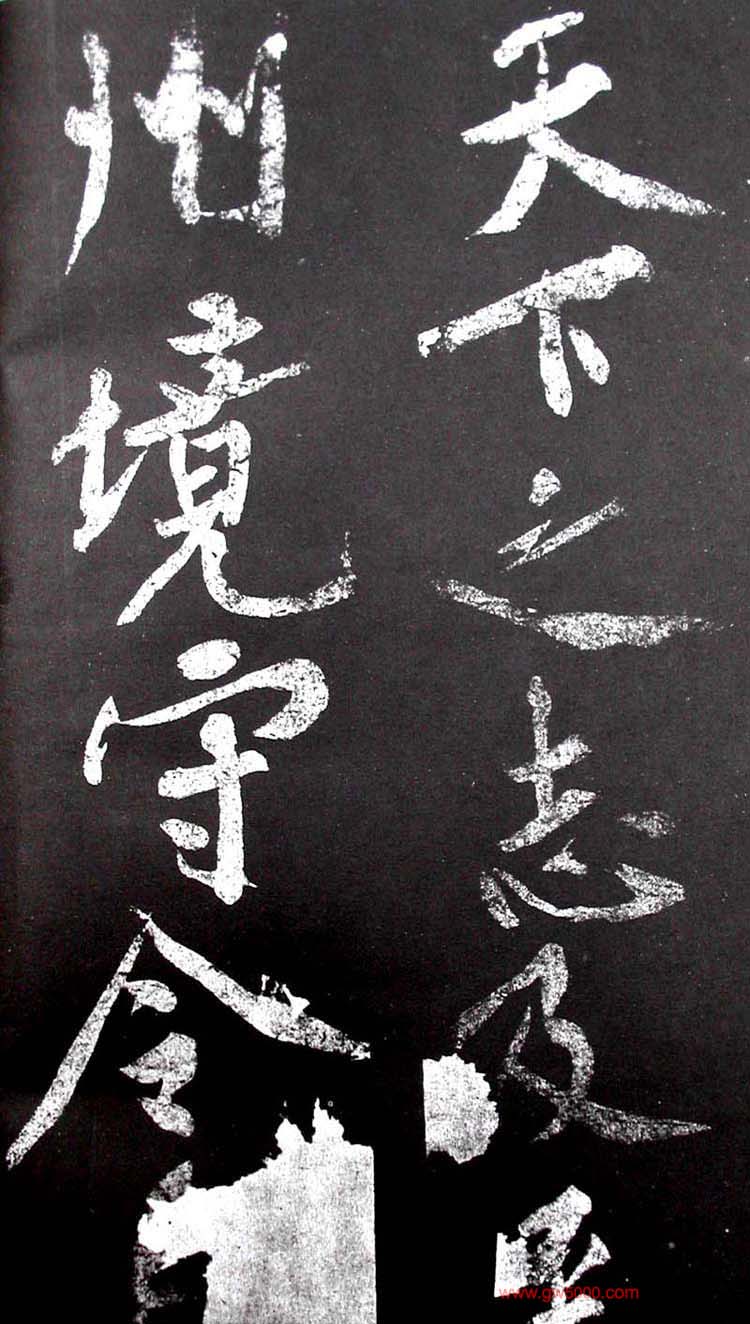 天下之志及
州境守令
www.gw6000.com